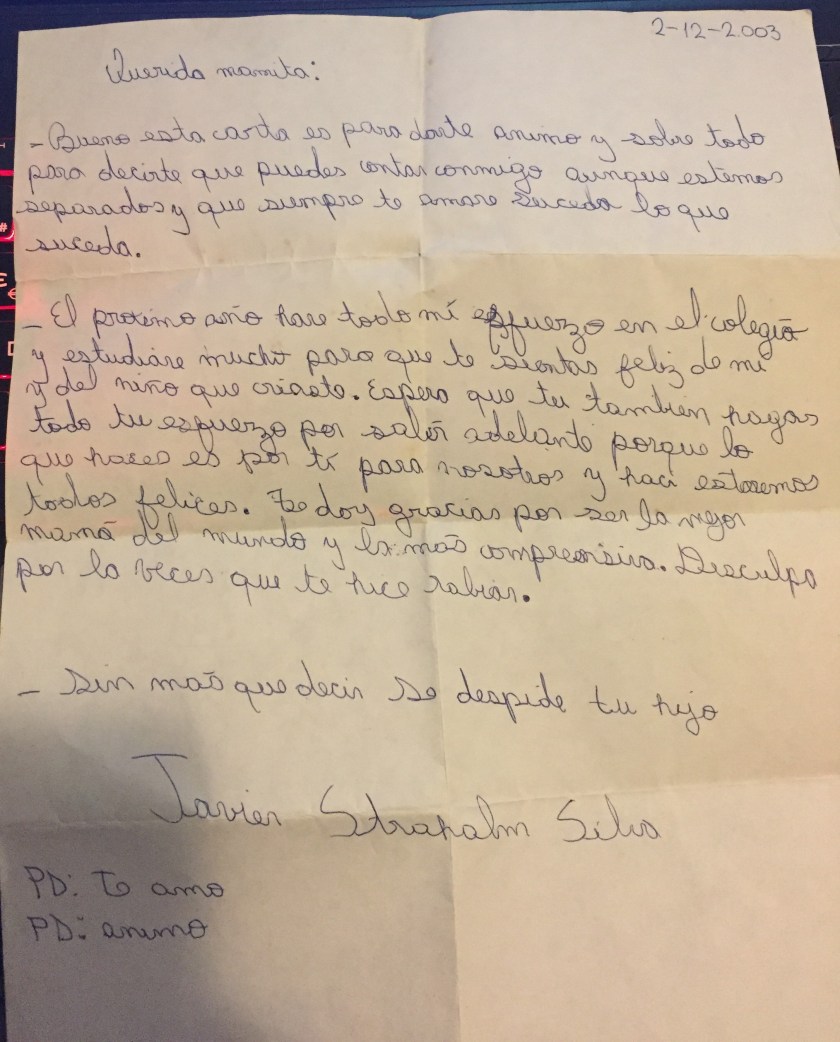 2-12-2.003
Querida mamita:
- Bueno esta carta es para darte animo y sobre todo
para decirte que puedes contar conmigo aunque estemos
separados y que siempre te amare suceda lo que
suceda.
- El proximo año hare todo mí esfuerzo en el colegio
y estudiare mucho para que te sientas feliz de mi
y del niño que criaste. Espero que tu tambien hagas
todo tu esfuerzo por salir adelante porque lo
que haces es por tí para nosotros y haci estaremos
todos felices. Te doy gracias por ser la mejor
mamá del mundo y la más comprensiva. Disculpa
por la veces que te hice rabiar.
- Sin más que decir se despide tu hijo
Javier Strahalm Silva
PD: te amo
PD: animo